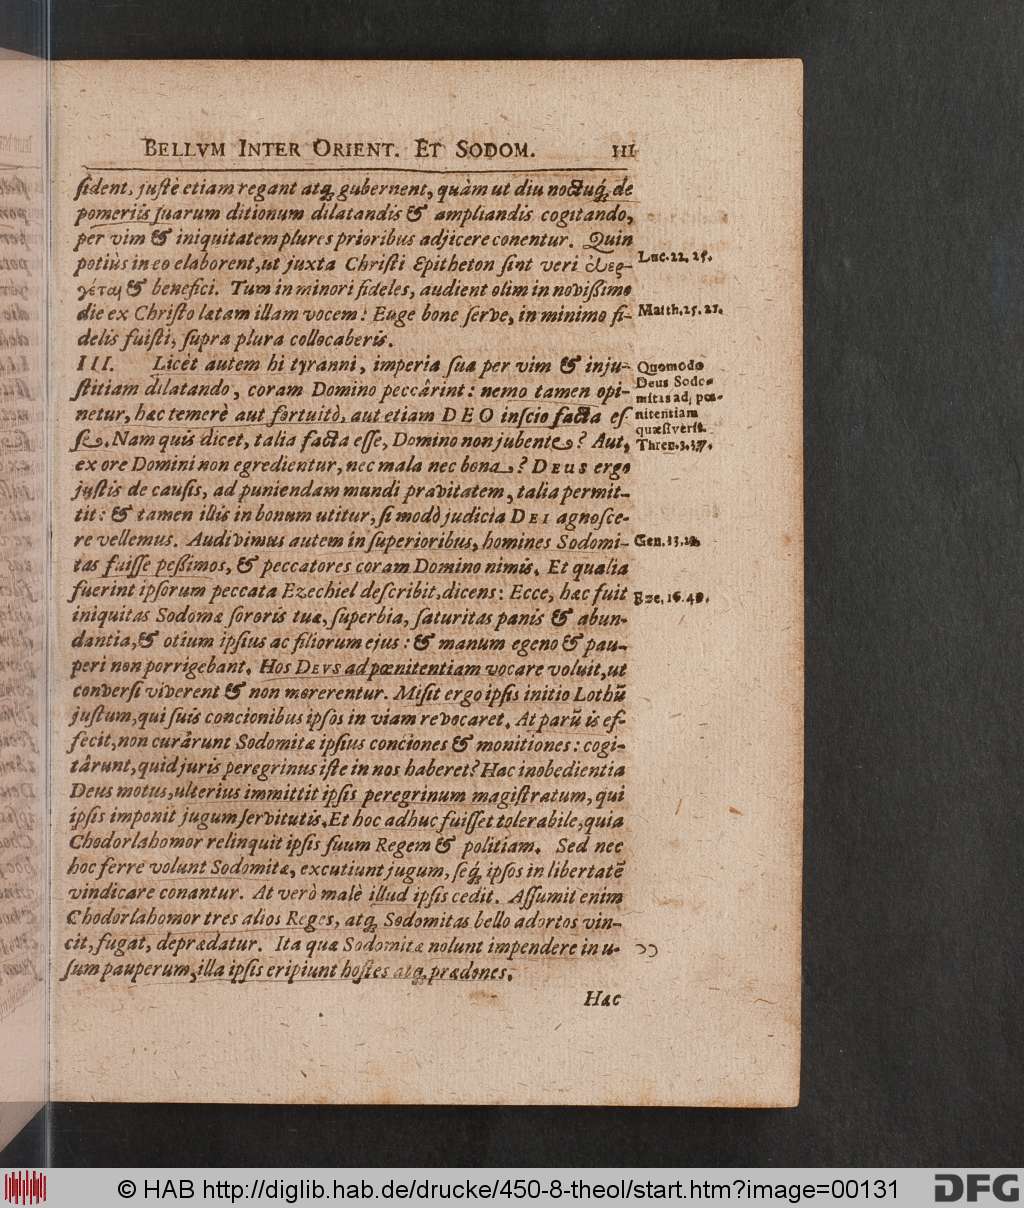 BELLVM INTER ORIENT. ET SODOM. III
sident, justè etiam regant atq́; gubernent, quàm ut diu noctuq́; de
pomeriis suarum ditionum dilatandis & ampliandis cogitando,
per vim & iniquitatem plures prioribus adjicere conentur. Quin
potiùs in eo elaborent, ut juxta Christi Epitheton sint veri ἐυερ-
γέται & benefici. Tum in minori fideles, audient olim in novißimo
die ex Christo latam illam vocem: Euge bone serve, in minimo fi-
delis fuisti, supra plura collocaberis.
III. Licèt autem hi tyranni, imperia sua per vim & inju-
stitiam dilatando, coram Domino peccârint: nemo tamen opi-
netur, hac temerè aut fortuitò, aut etiam DEO inscio facta es-
se. Nam quis dicet, talia facta esse, Domino non jubente? Aut,
ex ore Domini non egredientur, nec mala nec bona? DEUS ergo
justis de causis, ad puniendam mundi pravitatem, talia permit-
tit: & tamen illis in bonum utitur, si modò judicia DEI agnosce-
re vellemus. Audivimus autem in superioribus, homines Sodomi-
tas fuisse peßimos, & peccatores coram Domino nimis. Et qualia
fuerint ipsorum peccata Ezechiel describit, dicens: Ecce, hæc fuit
iniquitas Sodomæ sororis tuæ, superbia, saturitas panis & abun-
dantia, & otium ipsius ac filiorum ejus: & manum egeno & pau-
peri non porrigebant. Hos DEVS ad pœnitentiam vocare voluit, ut
conversi viverent & non morerentur. Misit ergo ipsis initio Lothũ
justum, qui suis concionibus ipsos in viam revocaret. At parũ is ef-
fecit, non curârunt Sodomitæ ipsius conciones & monitiones: cogi-
târunt, quid juris peregrinus iste in nos haberet? Hac inobedientia
Deus motus, ulterius immittit ipsis peregrinum magistratum, qui
ipsis imponit jugum servitutis. Et hoc adhuc fuisset tolerabile, quia
Chodorlahomor relinquit ipsis suum Regem & politiam. Sed nec
hoc ferre volunt Sodomitæ, excutiunt jugum, seq́; ipsos in libertatẽ
vindicare conantur. At verò malè illud ipsis cedit. Assumit enim
Chodorlahomor tres alios Reges, atq́; Sodomitas bello adortos vin-
cit, fugat, deprædatur. Ita quæ Sodomitæ nolunt impendere in u-
sum pauperum, illa ipsis eripiunt hostes atq́; prædones.
Hac
Luc. 22, 25.
Matth. 25. 21.
Quomodo
Deus Sodo-
mitas ad pœ-
nitentiam
quæsiverit.
Thren. 3. 37.
Gen. 13. 13.
Eze. 16. 49.
© HAB http://diglib.hab.de/drucke/450-8-theol/start.htm?image=00131
DFG